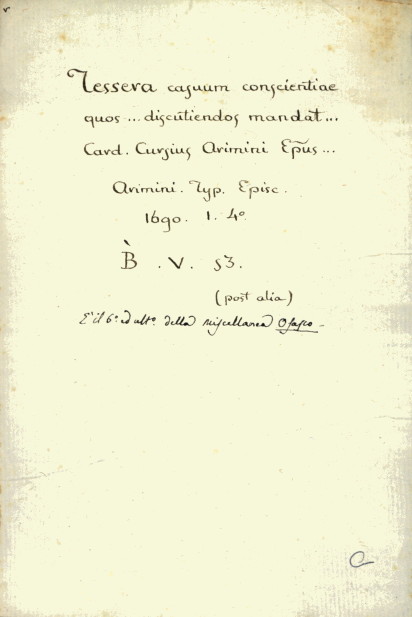 Tessera casuum conscientiae
quos ... discutiendos mandat ...
Card. Cursius Arimini Ep̃us ...
Arimini. Typ. Episc.
1690. 1. 4º.
B̀ . V. 53.
(post alia)
E' il 6º. ed ultº. della miscellanea
C